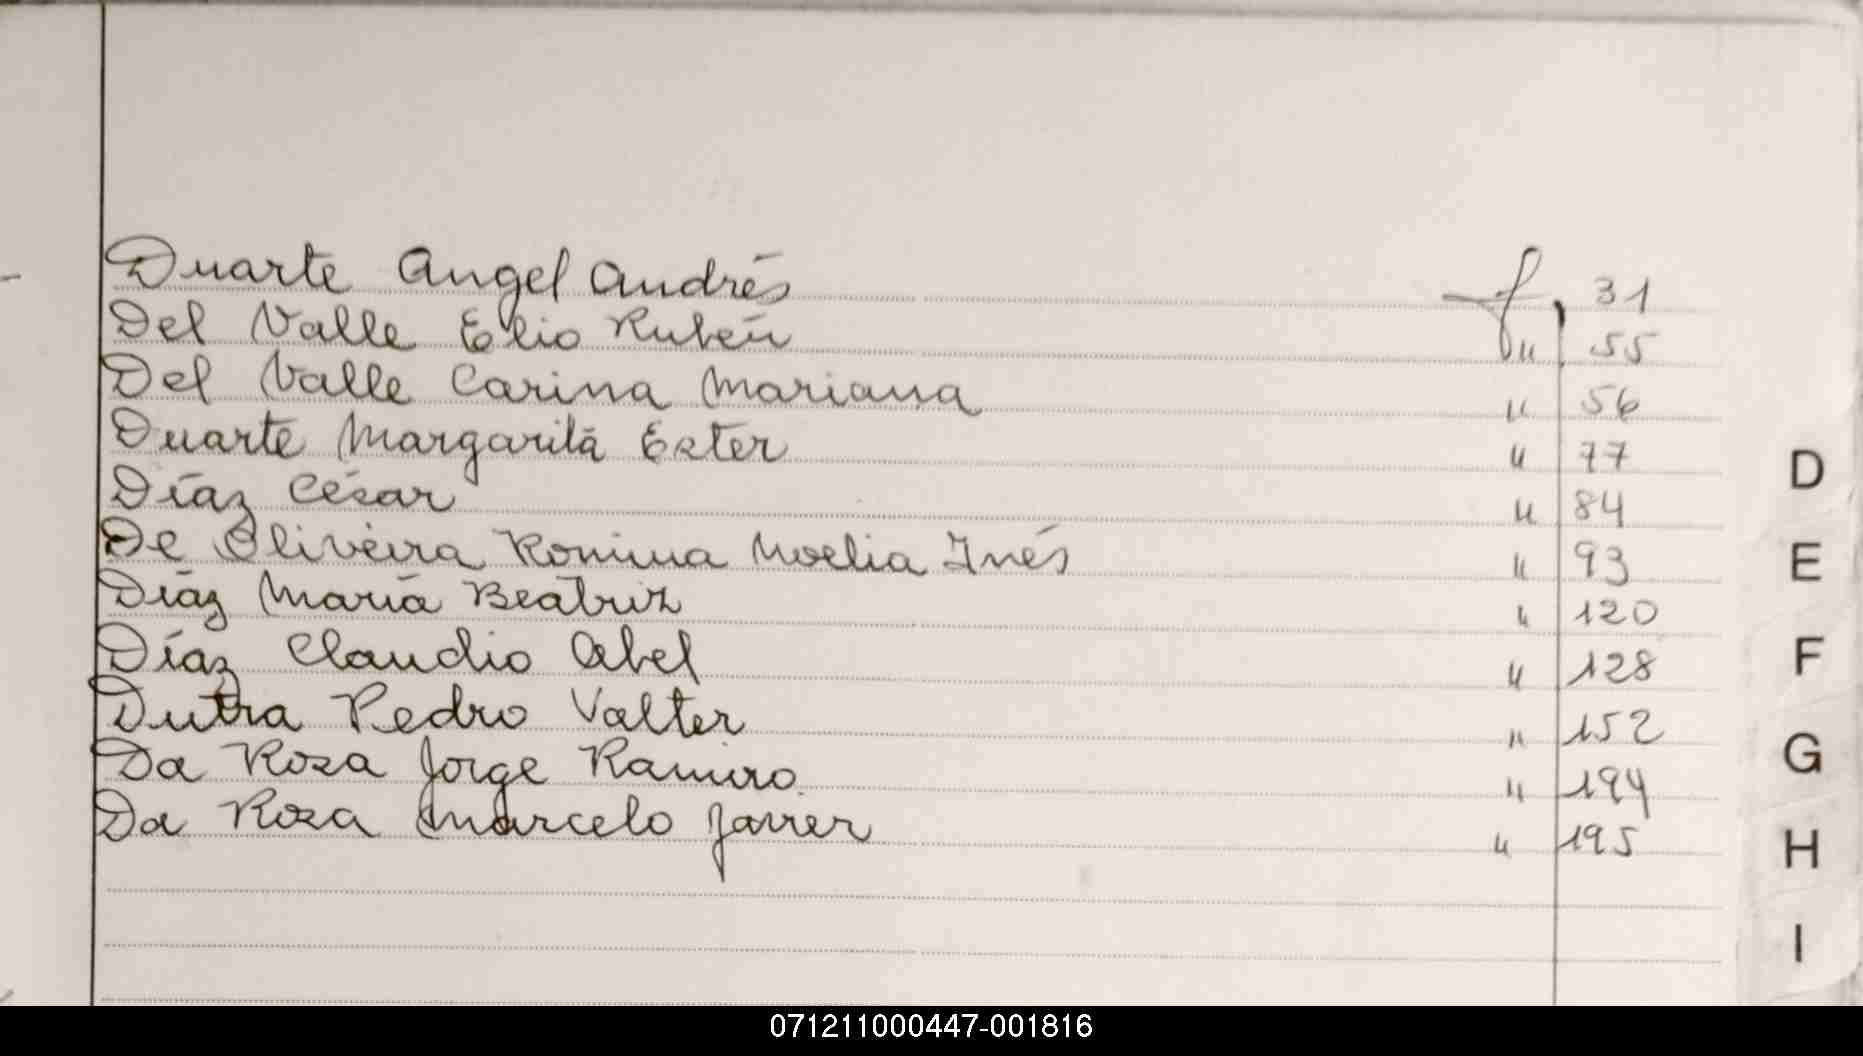 Duarte Angel Andrés f, 31
Del Valle Elio Rubén " 55
Del Valle Carina Mariana " 56
Duarte Margarita Ester " 77
Díaz César " 84
De Oliveira Romina Noelia Inés " 93
Díaz María Beatriz " 120
Díaz Claudio Abel " 128
Dutra Pedro Valter " 152
Da Rosa Jorge Ramiro " 194
Da Rosa Marcelo Javier " 195
D
E
F
G
H
I
071211000447-001816